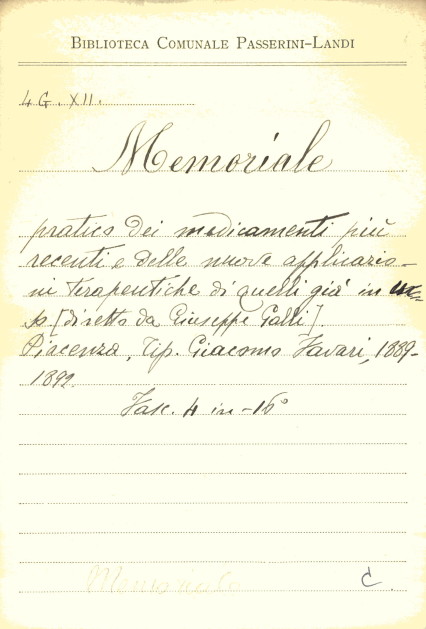 BIBLIOTECA COMUNALE PASSERINI-LANDI
4 G. XII.
Memoriale
pratico dei medicamenti più
recenti e delle nuove applicazio-
ni terapeutiche di quelli già in u-
so [diretto da Giuseppe Galli].
Piacenza, Tip. Giacomo Favari, 1889-
1892.
Fasc. 4 in-16°
Memoriale
C.